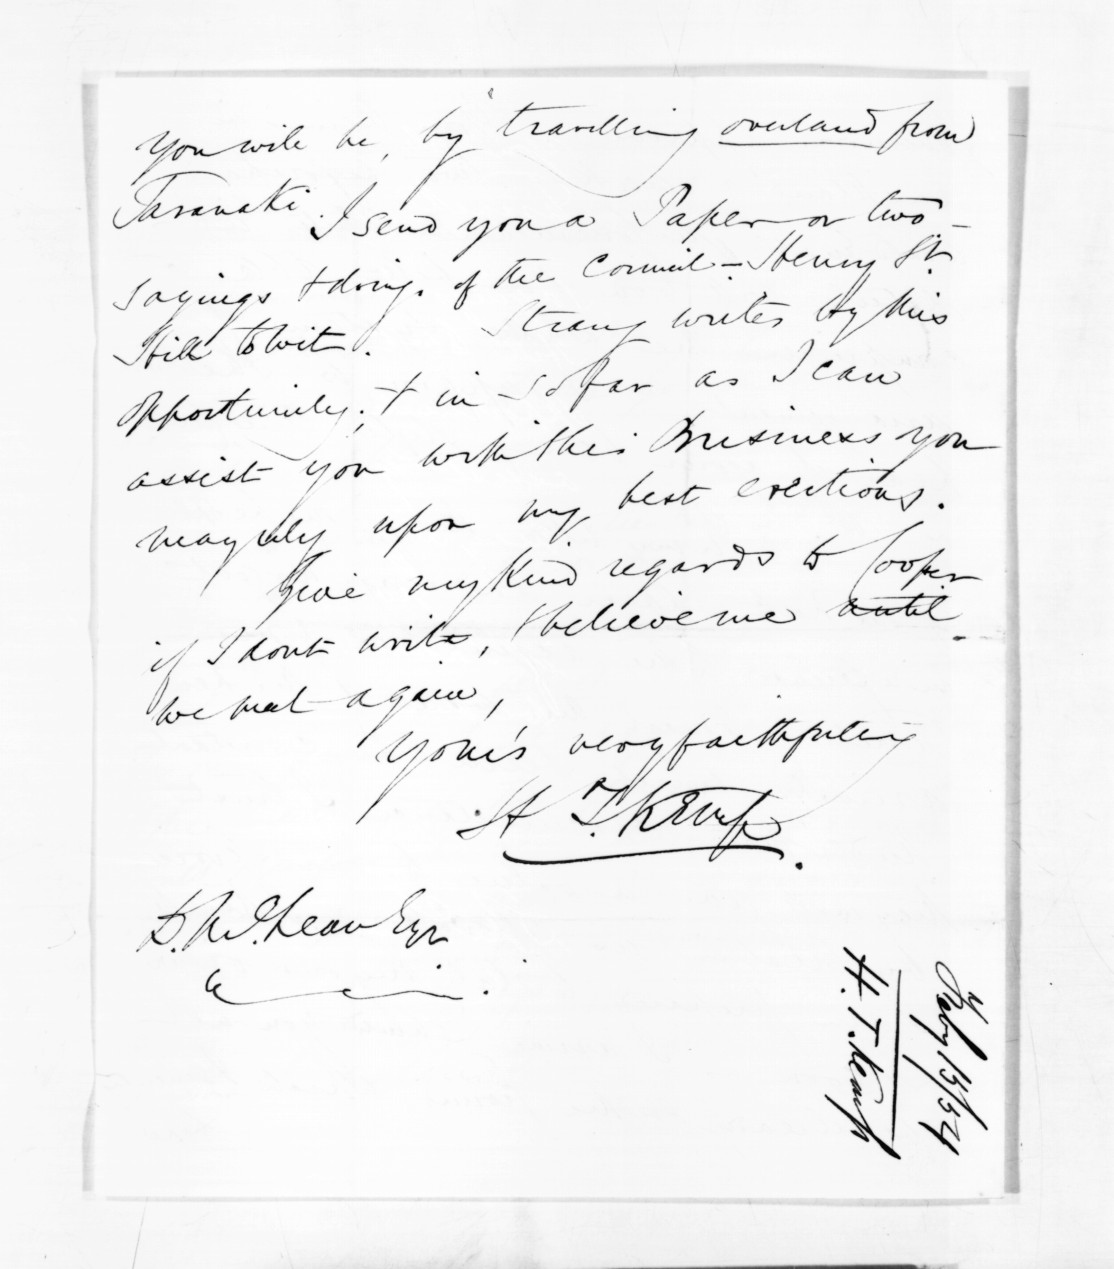 you will be, by travelling overland from
Taranaki. I send you a Paper or two -
sayings & doings. of the Council - Henry St.
Hill to wit. Strang writes by this
opportunity, & in so far as I can
assist you with this Business you
may rely upon my best exertions.
Give my kind regards to Cooper
if I dont write, & believe me until
we meet again,
Your's very faithfully
H T. Kemp.
D. McLean Esqr
H. T. Kemp
Feby 13/54